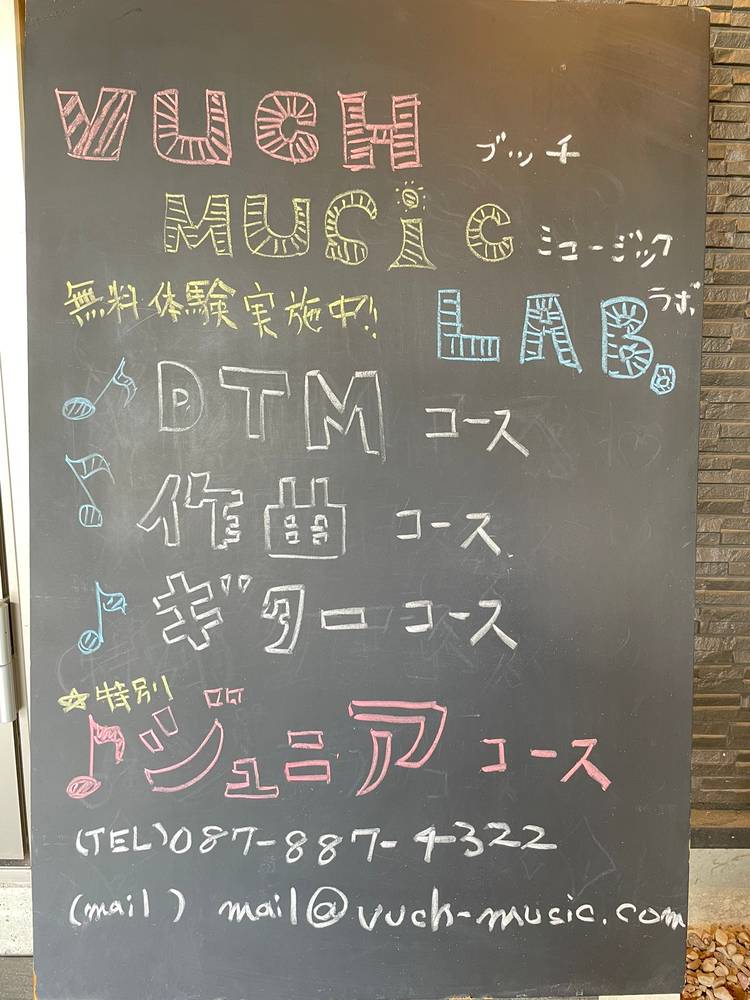 VUCH ブッチ
MUSiC ミュージック
無料体験実施中!! LAB. ラボ
♪ DTM コース
♪ 作曲 コース
♪ ギターコース
☆特別
♪ ジュニア コース
(TEL) 087-887-4322
(mail) mail@vuch-music.com